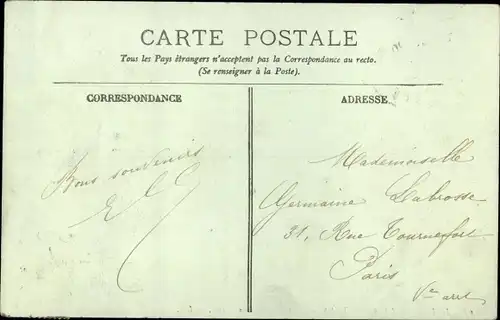 CARTE POSTALE
Tous les Pays étrangers n'acceptent pas la Correspondance au recto.
(Se renseigner à la Poste).
CORRESPONDANCE
Bons souvenirs
ADRESSE
Mademoiselle
Germaine Labrosse
31, Rue Tournefort
Paris
Ve arrt